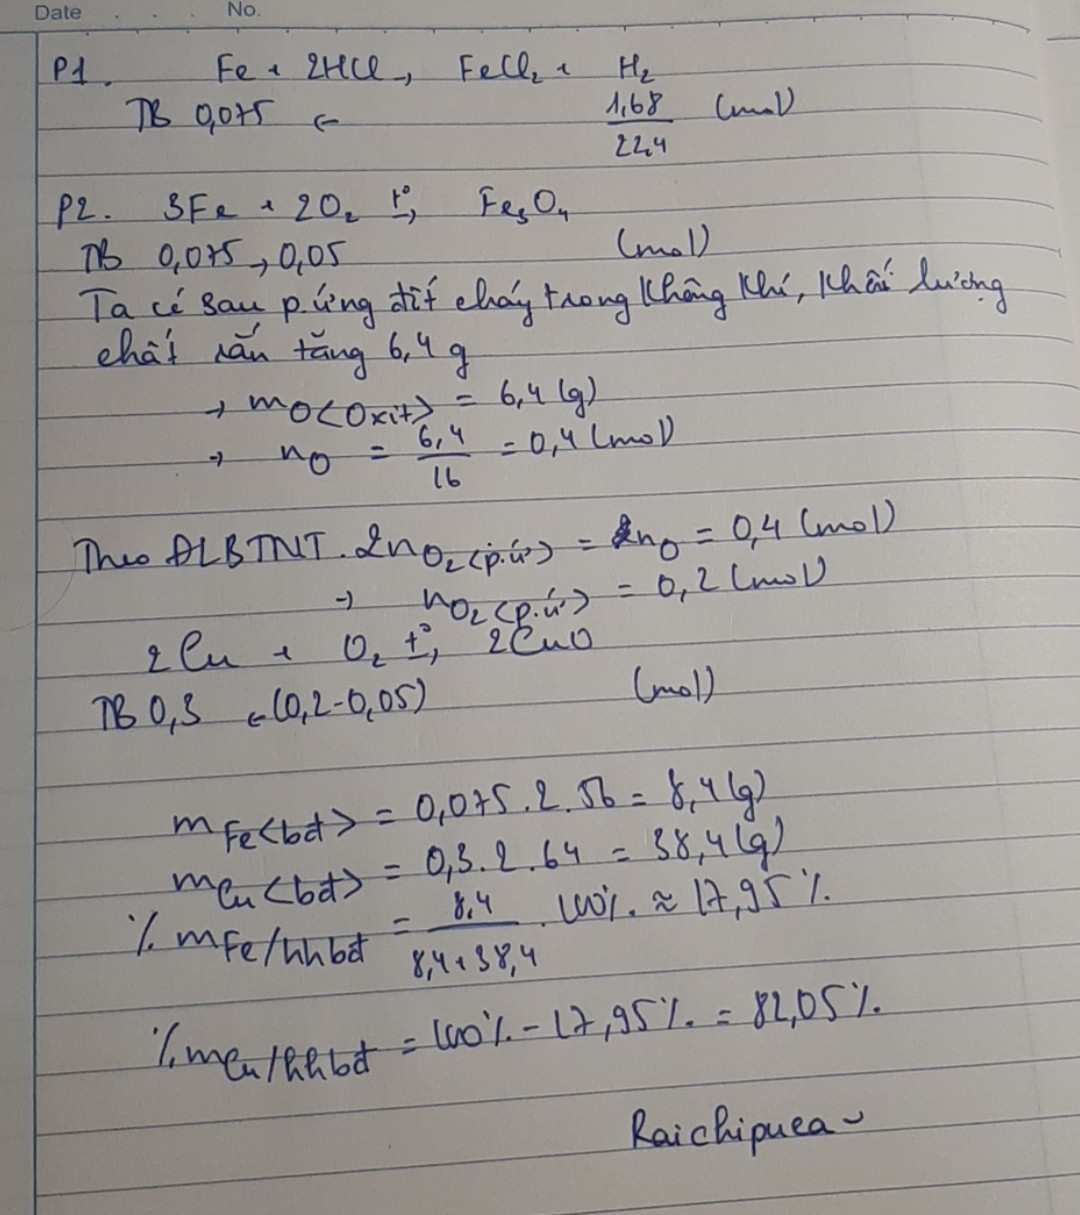 Date No.
P1. Fe + 2HCl → FeCl₂ + H₂
TB 0,075 ← 1,68/22,4 (mol)
P2. 3Fe + 2O₂ t°→ Fe₃O₄
TB 0,075 → 0,05 (mol)
Ta có sau p.ứng đốt cháy trong không khí, khối lượng
chất rắn tăng 6,4 g
→ mO<Oxit> = 6,4 (g)
→ nO = 6,4/16 = 0,4 (mol)
Theo ĐLBTNT. 2nO₂<p.ứ> = nO = 0,4 (mol)
→ nO₂<p.ứ> = 0,2 (mol)
2Cu + O₂ t°→ 2CuO
TB 0,3 ← (0,2-0,05) (mol)
mFe<bđ> = 0,075.2.56 = 8,4 (g)
mCu<bđ> = 0,3.2.64 = 38,4 (g)
%mFe/hhbđ = 8,4/8,4+38,4 . 100% ≈ 17,95%
%mCu/hhbđ = 100% - 17,95% = 82,05%
Raichipuea~